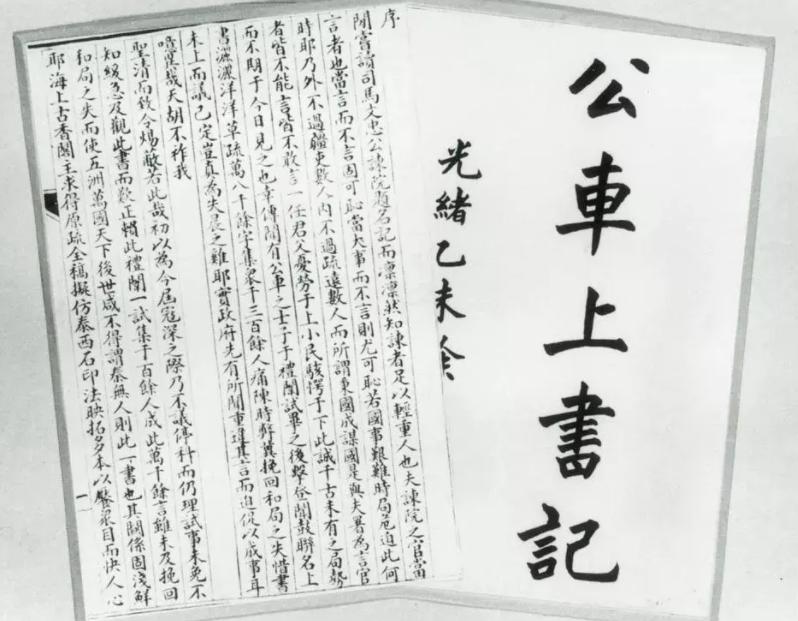 公車上書記
光緒乙未
序
聞嘗讀司馬文忠公諫院題名記而凜凜然知諫者足以輕重人也夫諫院之官當
言者也當言而不言固可恥當大事而不言則尤可恥若國事艱難時局危迫此何
時耶乃外不過疆吏數人內不過疏遠數人而所謂秉國成謀國是與夫署為言官
者皆不能言皆不敢言一任君父憂勞于上小民駭愕于下此誠千古未有之局勢
而不期于今日見之也幸傳聞有公車之士子于禮闈試畢之後擊登聞鼓聯名上
書灑灑洋洋草疏萬八千餘字集眾千三百餘人痛陳時弊冀挽回和局之失惜書
未上而議已定豈真為失晨之雞耶實政府先有所聞重違其言而迫促以成事耳
噫異哉天胡不祚我
聖清而致令煬蔽若此哉初以為今屆寇深之際乃不議停科而仍理試事未免不
知緩急及觀此書而歎正賴此禮闈一試集千百餘人成此萬千餘言雖未及挽回
和局之失而使五洲萬國天下後世咸不得謂秦無人則此一書也其關係固淺鮮
耶海上古香閣主求得原疏全稿擬仿泰西石印法映拓多本以饜眾目而快人心
一